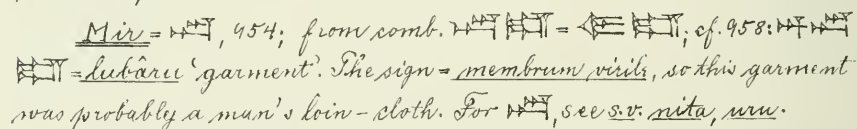 Mir = , 954; from comb. = ; cf. 958:
= lubâru 'garment'. The sign = membrum virile, so this garment
was probably a man's loin-cloth. For , see s.v. nita, uru.